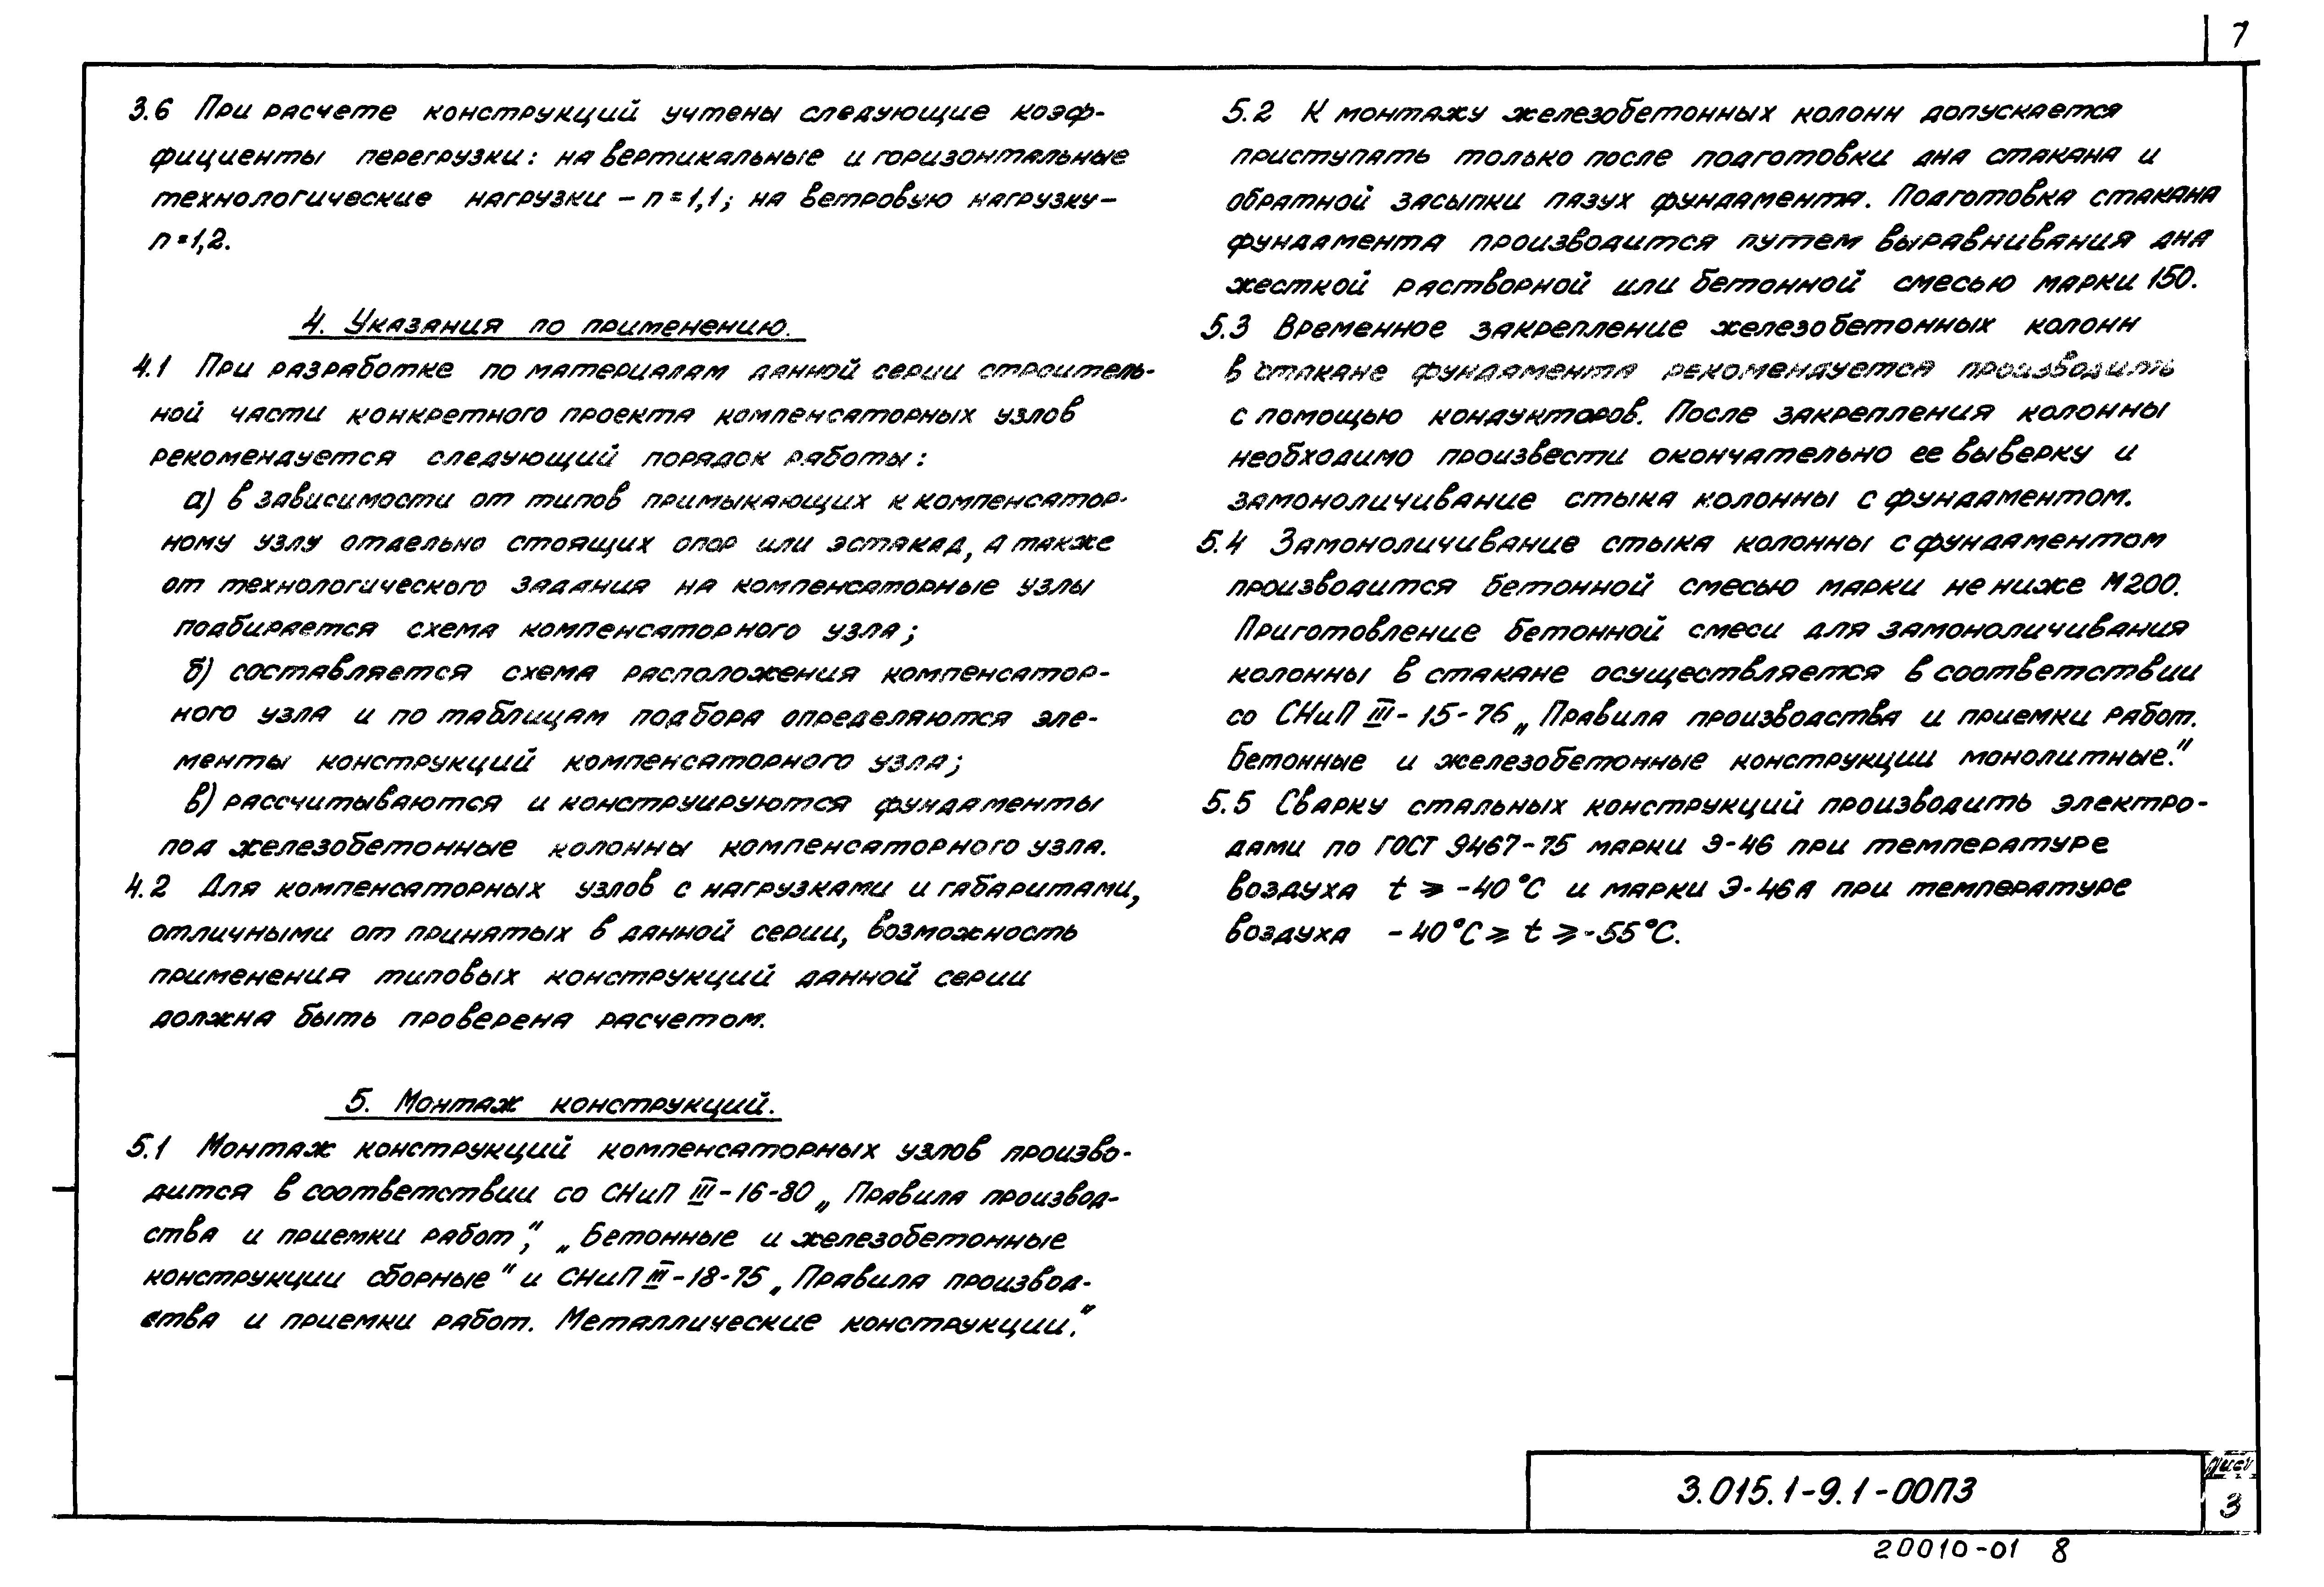 7
3.6 При расчете конструкций учтены следующие коэф-
фициенты перегрузки: на вертикальные и горизонтальные
технологические нагрузки – n=1,1; на ветровую нагрузку –
n=1,2.
4. Указания по применению.
4.1 При разработке по материалам данной серии строитель-
ной части конкретного проекта компенсаторных узлов
рекомендуется следующий порядок работы:
а) в зависимости от типов примыкающих к компенсатор-
ному узлу отдельно стоящих опор или эстакад, а также
от технологического задания на компенсаторные узлы
подбирается схема компенсаторного узла;
б) составляется схема расположения компенсатор-
ного узла и по таблицам подбора определяются эле-
менты конструкций компенсаторного узла;
в) рассчитываются и конструируются фундаменты
под железобетонные колонны компенсаторного узла.
4.2 Для компенсаторных узлов с нагрузками и габаритами,
отличными от принятых в данной серии, возможность
применения типовых конструкций данной серии
должна быть проверена расчетом.
5. Монтаж конструкций.
5.1 Монтаж конструкций компенсаторных узлов произво-
дится в соответствии со СНиП III-16-80 „Правила производ-
ства и приемки работ", „Бетонные и железобетонные
конструкции сборные" и СНиП III-18-75 „Правила производ-
ства и приемки работ. Металлические конструкции."
5.2 К монтажу железобетонных колонн допускается
приступать только после подготовки дна стакана и
обратной засыпки пазух фундамента. Подготовка стакана
фундамента производится путем выравнивания дна
жесткой растворной или бетонной смесью марки 150.
5.3 Временное закрепление железобетонных колонн
в стакане фундамента рекомендуется производить
с помощью кондукторов. После закрепления колонны
необходимо произвести окончательно ее выверку и
замоноличивание стыка колонны с фундаментом.
5.4 Замоноличивание стыка колонны с фундаментом
производится бетонной смесью марки не ниже М200.
Приготовление бетонной смеси для замоноличивания
колонны в стакане осуществляется в соответствии
со СНиП III-15-76 „Правила производства и приемки работ.
Бетонные и железобетонные конструкции монолитные."
5.5 Сварку стальных конструкций производить электро-
дами по ГОСТ 9467-75 марки Э-46 при температуре
воздуха t ⩾ -40°С и марки Э-46А при температуре
воздуха -40°С ⩾ t ⩾ -55°С.
3.015.1-9.1-00ПЗ
Лист
3
20010-01 8